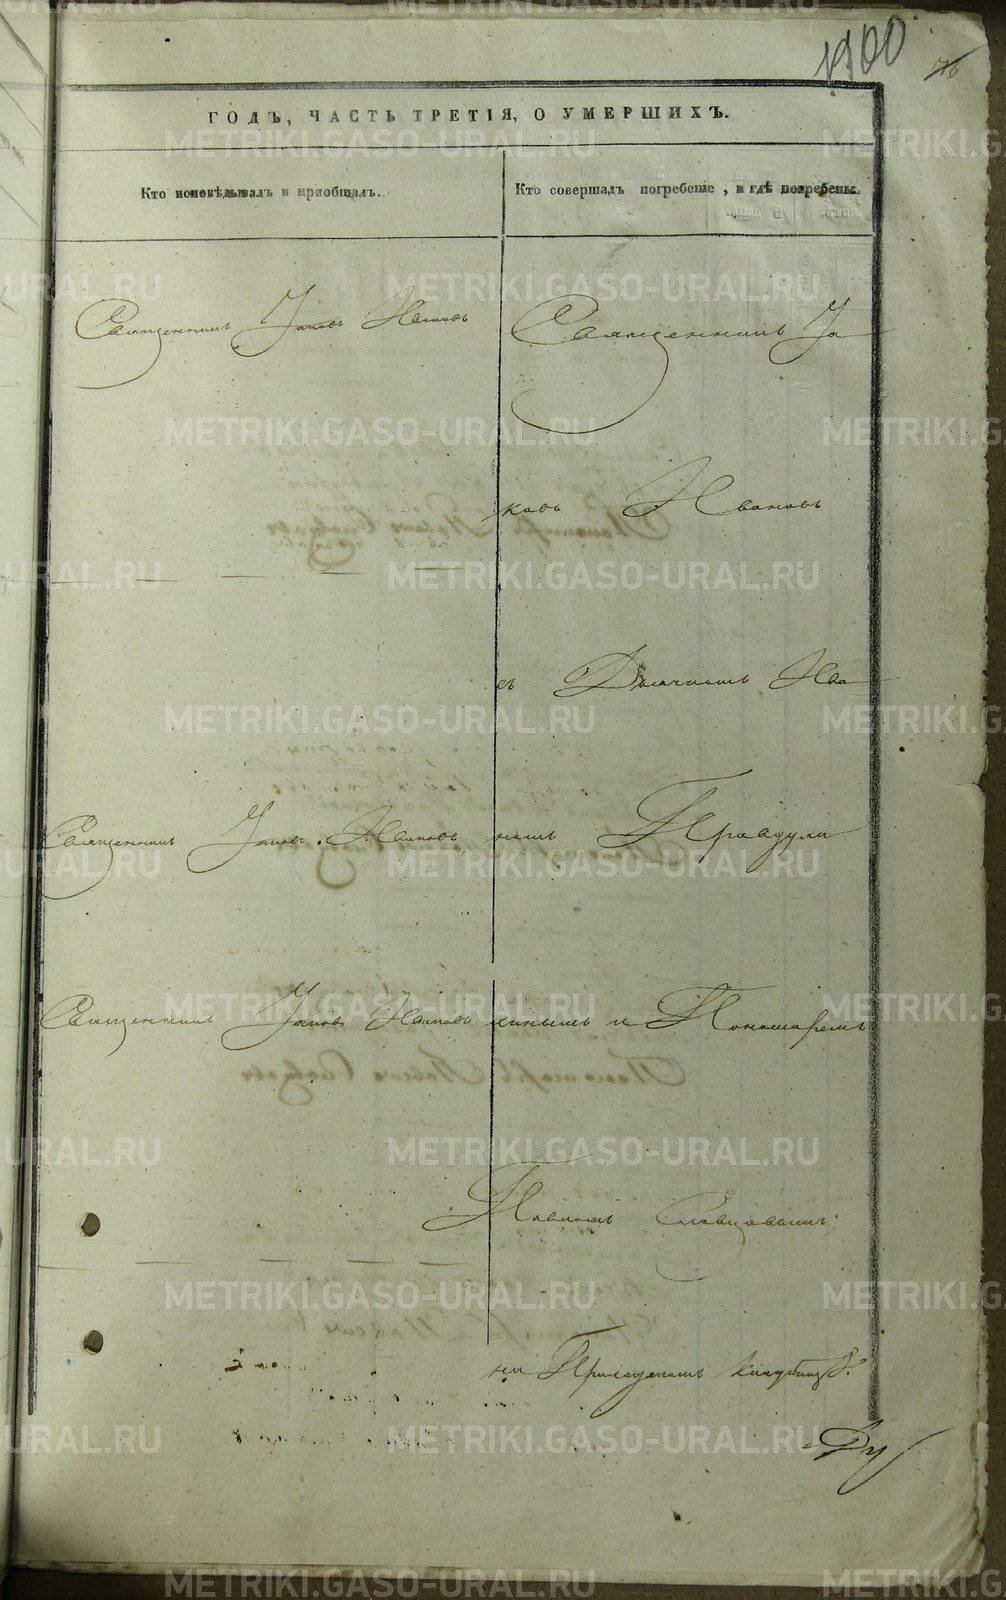 1900
76
ГОДЪ, ЧАСТЬ ТРЕТІЯ, О УМЕРШИХЪ.
Кто исповѣдывалъ и пріобщалъ.
Кто совершалъ погребеніе, и гдѣ погребены.
Священникъ Іаковъ Ивановъ
Священникъ Іа
ковъ Ивановъ
съ Дьячкомъ Ива
Священникъ Іаковъ Ивановъ
номъ Правдухи
Священникъ Іаковъ Ивановъ
нымъ и Пономаремъ
Павломъ Словцовымъ;
на Приходскомъ кладбищѣ.
METRIKI.GASO-URAL.RU